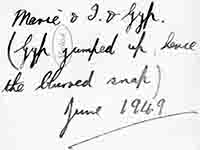 Marie & I. & Gyp.
(Gyp jumped up, hence
the blurred snap)
June 1949